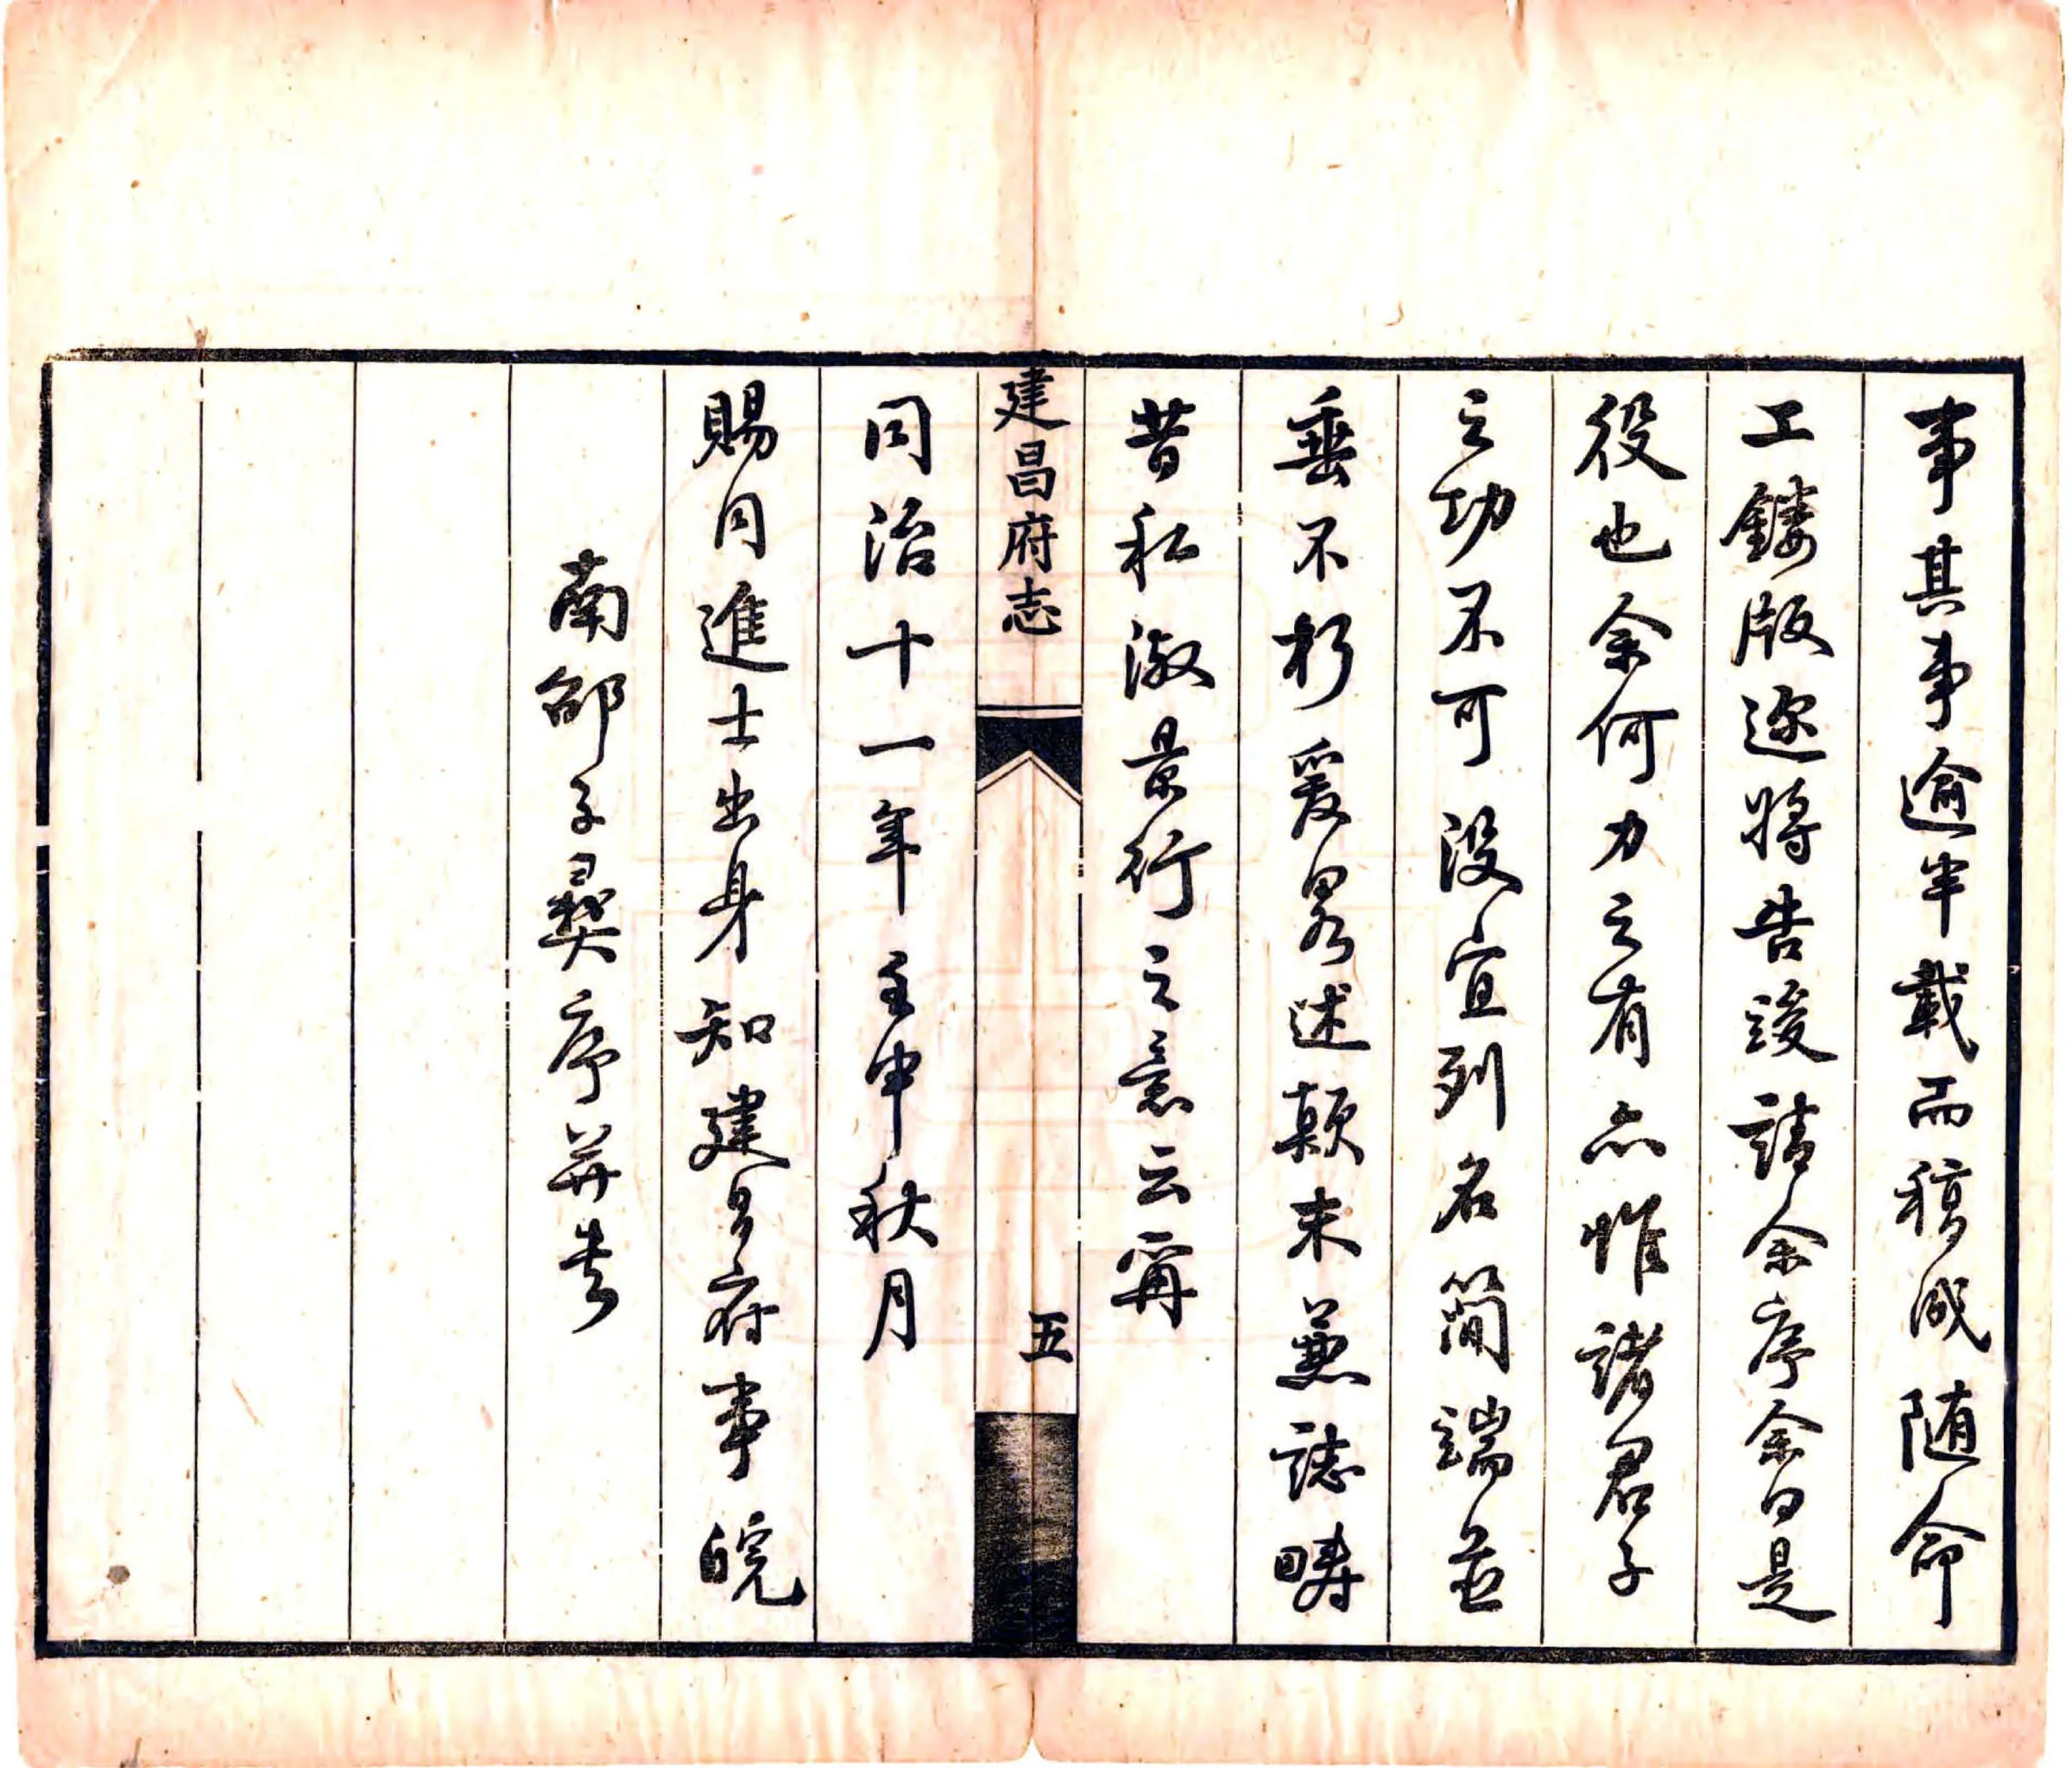 事其事逾半載而稿成随命
工鏤版迩將告竣請余序余曰是
役也余何力之有亦惟諸君子
之功不可没宜列名簡端並
垂不朽爰畧述顛末兼誌疇
昔私淑景行之意云甯
建昌府志
五
同治十一年壬申秋月
賜同進士出身知建昌府事皖
南邵子彝序並書